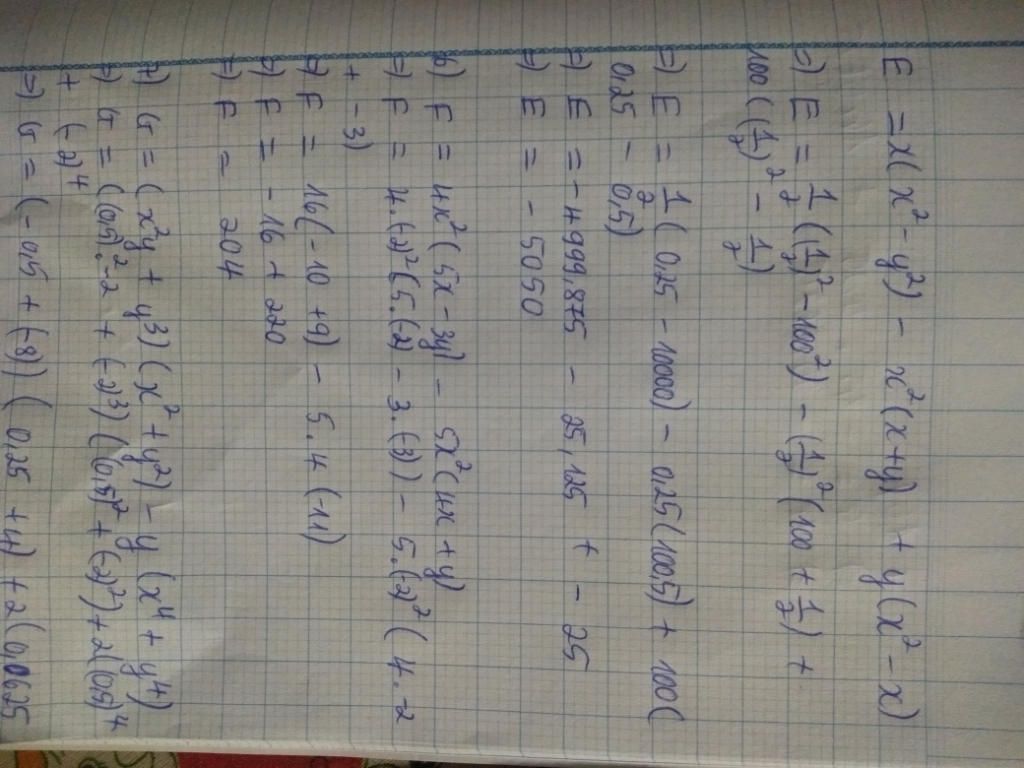 E = x(x² - y²) - x²(x+y) + y(x² - x)
=) E = 1/2 ((1/2)² - 100²) - (1/2)² (100 + 1/2) +
100 ((1/2)² - 1/2)
=) E = 1/2 ( 0,25 - 10000) - 0,25(100,5) + 100(
0,25 - 0,5)
=) E = - 4999,875 - 25,125 + - 25
=) E = - 5050
6) F = 4x² (5x - 3y) - 5x² (4x + y)
=) F = 4.(-2)² (5.(-2) - 3.(-3)) - 5.(-2)² (4.-2
+ -3)
=) F = 16(-10 + 9) - 5.4 (-11)
=) F = - 16 + 220
=) F = 204
7) G = (x²y + y³) (x² + y²) - y (x⁴ + y⁴)
=) G = ((0,5)².-2 + (-2)³) ((0,5)² + (-2)²) + 2((0,5)⁴
+ (-2)⁴
=) G = (-0,5 + (-8)) ( 0,25 + 4) + 2(0,0625